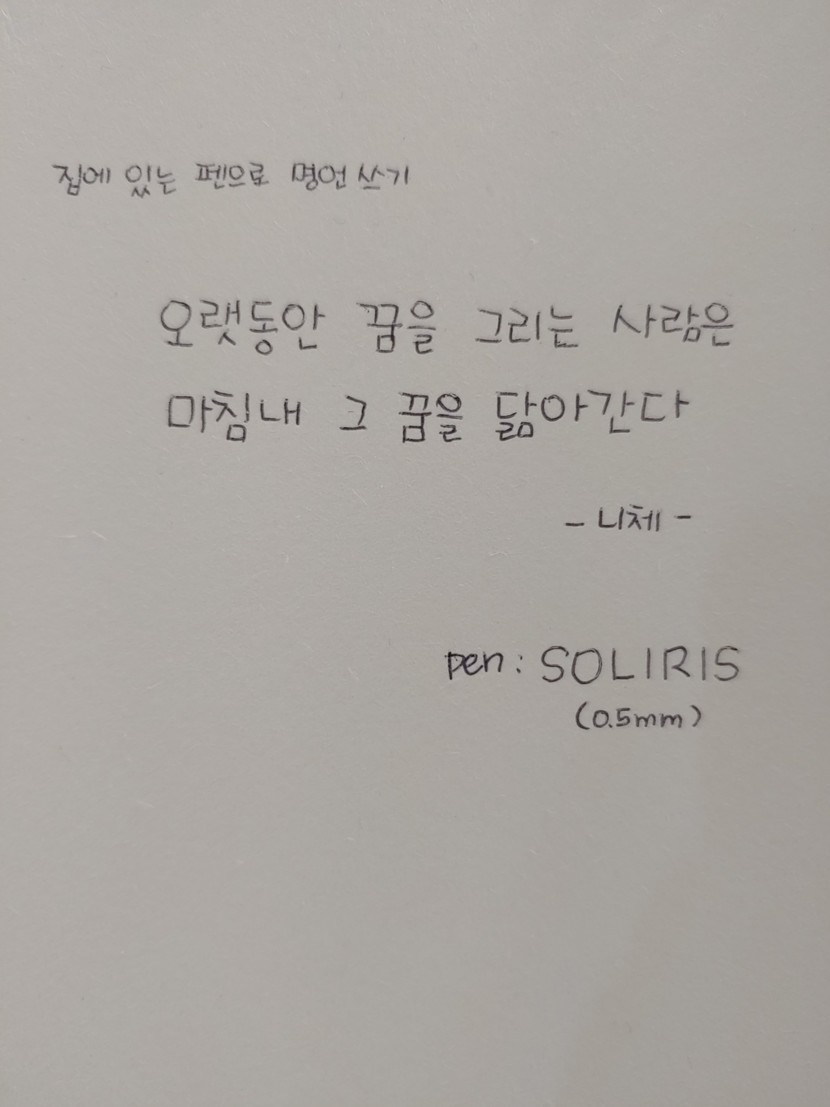 집에 있는 펜으로 명언 쓰기
오랫동안 꿈을 그리는 사람은
마침내 그 꿈을 닮아간다
- 니체 -
pen: SOLIRIS
(0.5mm)